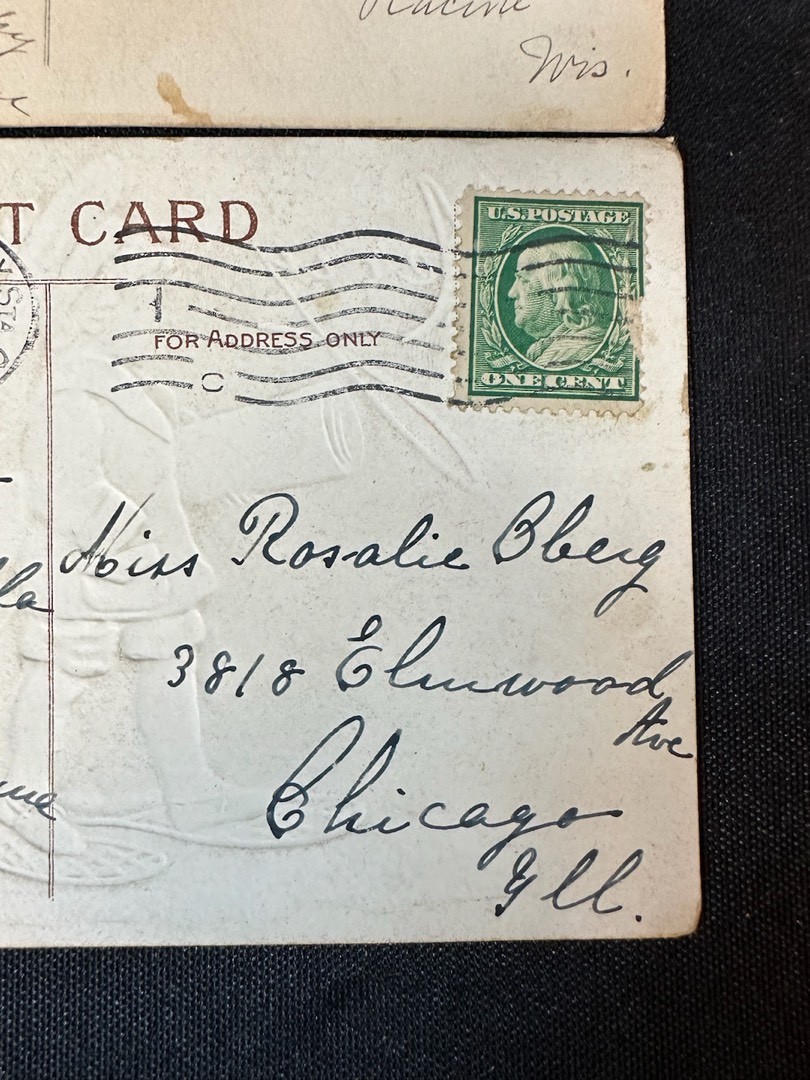 Racine
Wis.
T CARD
U.S. POSTAGE
ONE CENT
STA.
1
FOR ADDRESS ONLY
C
Miss Rosalie Oberg
3818 Elmwood
Ave
Chicago
Ill.